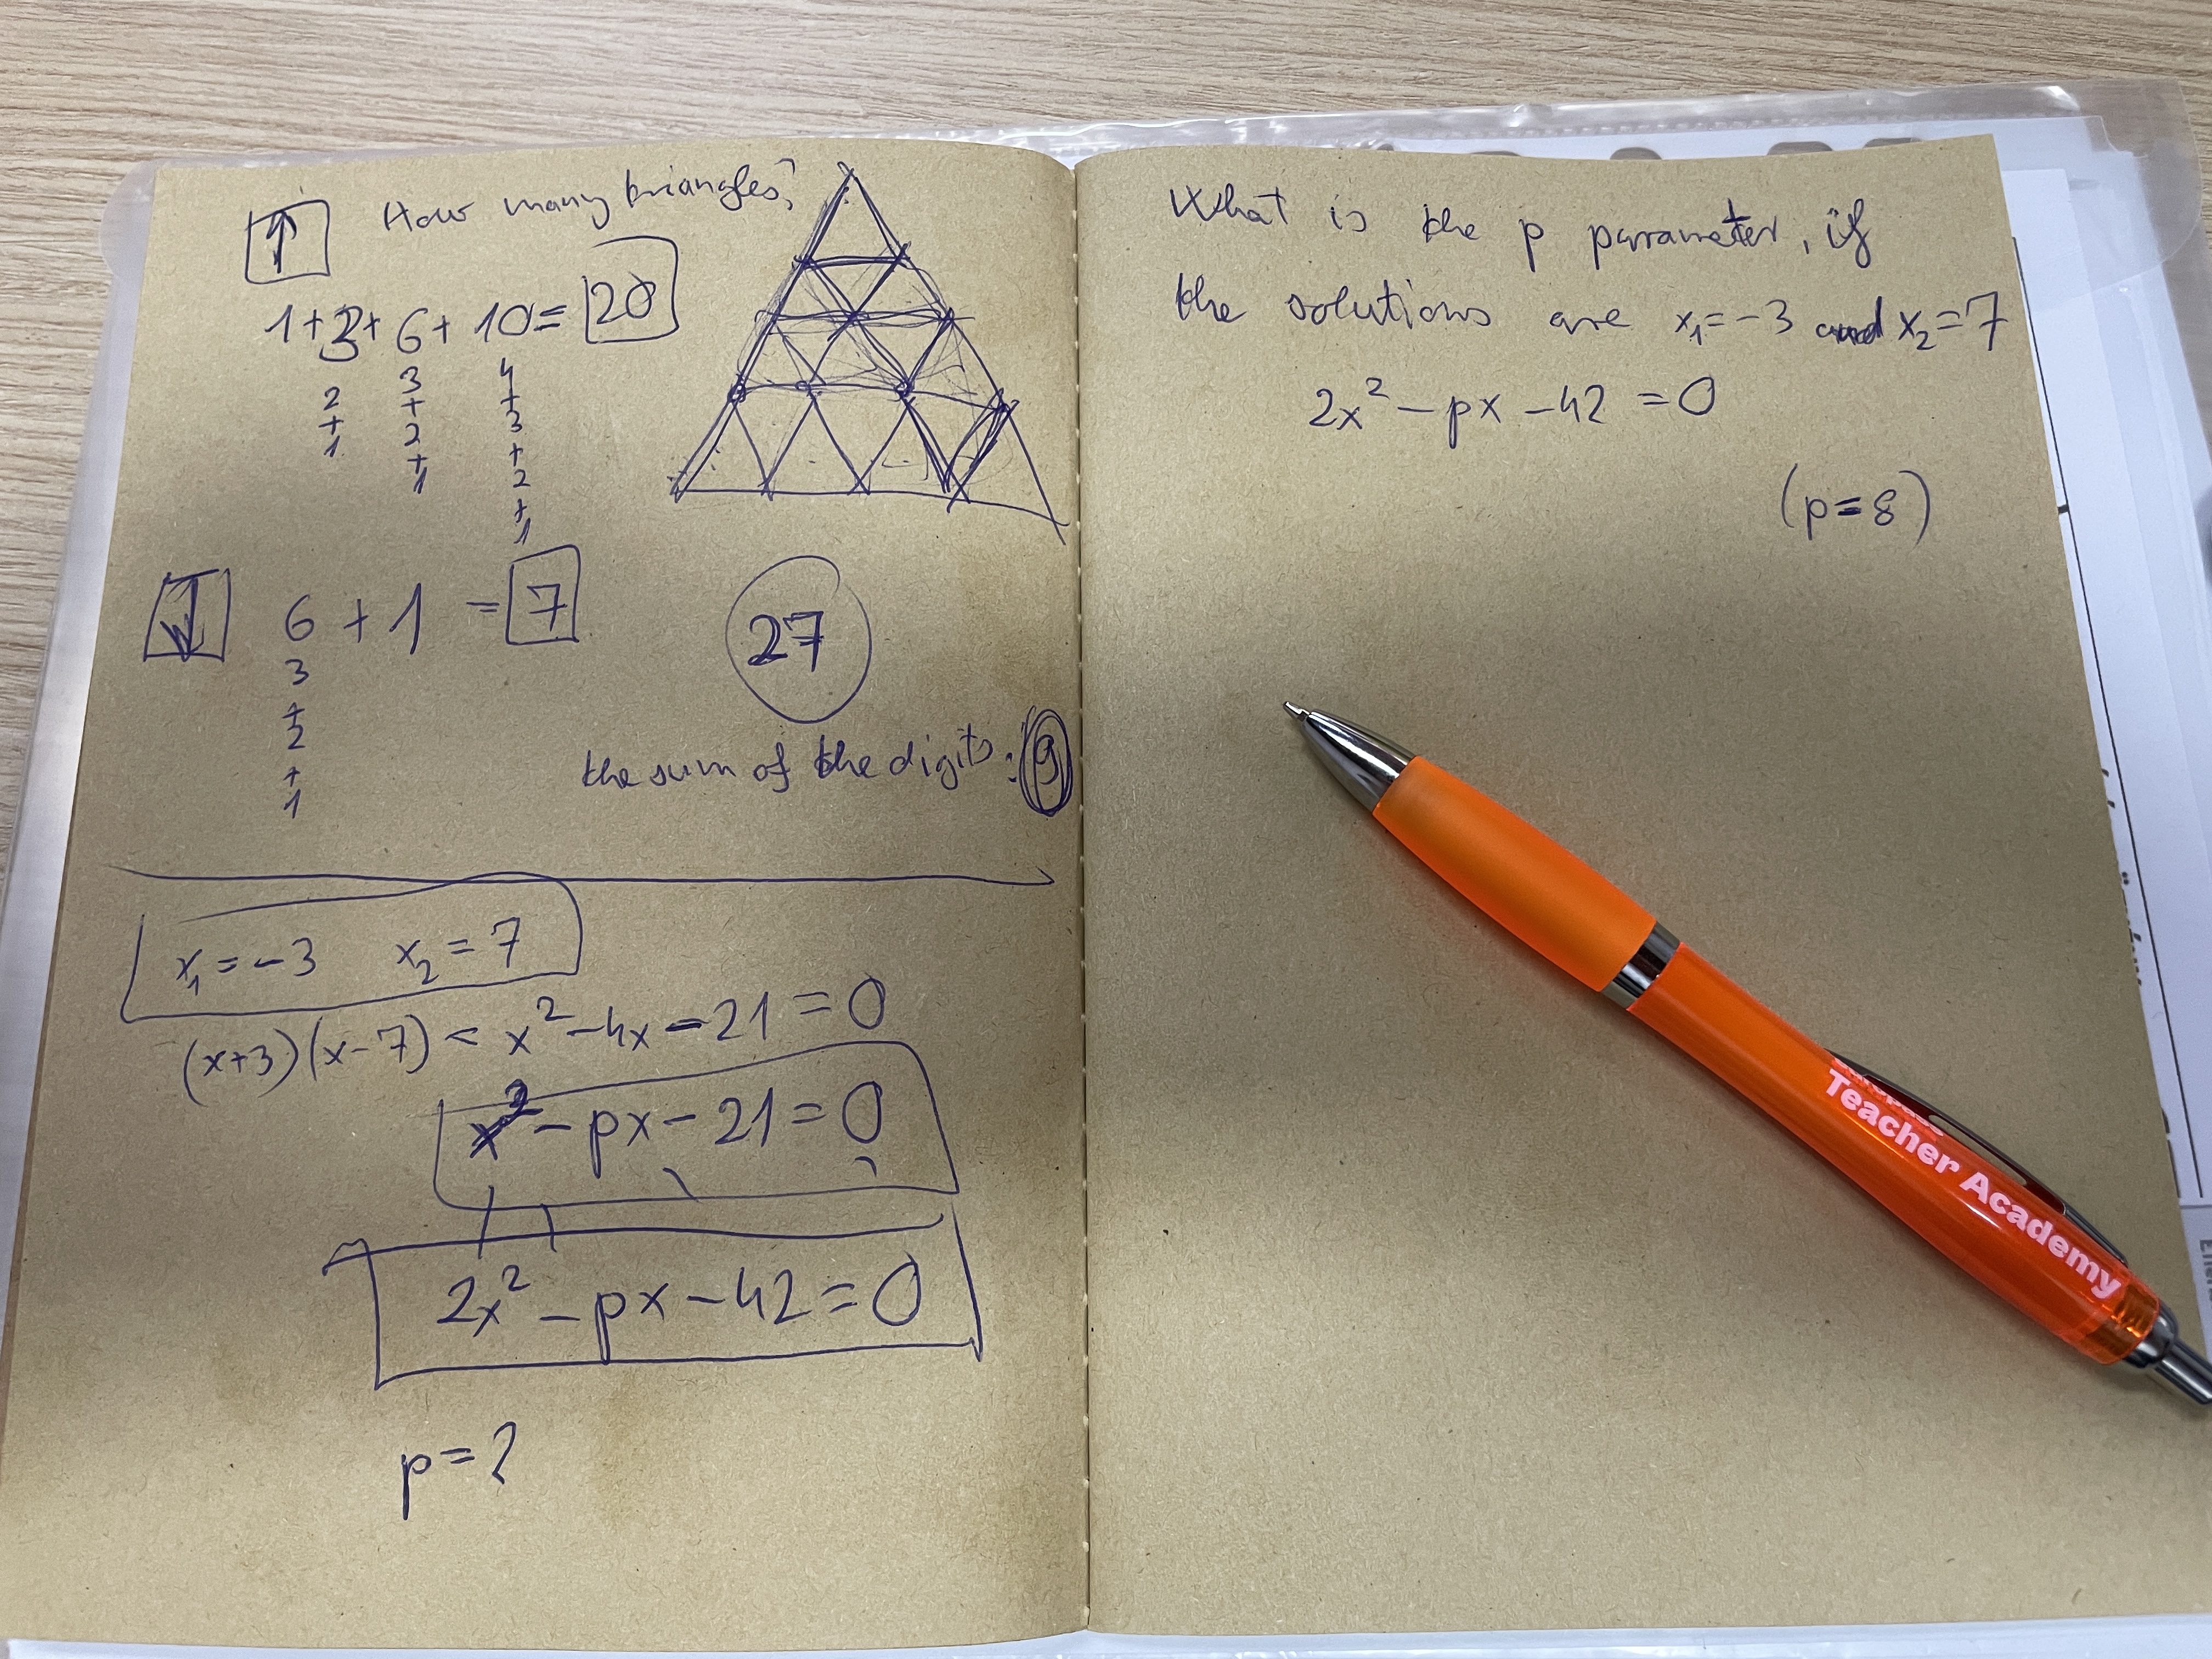 How many triangles?
↑
1+3+6+10=20
2
+
1
3
+
2
+
1
4
+
3
+
2
+
1
↓
6+1=7
3
+
2
+
1
27
the sum of the digits: 9
x₁=-3 x₂=7
(x+3)(x-7) = x²-4x-21=0
x²-px-21=0
2x²-px-42=0
p=?
What is the p parameter, if
the solutions are x₁=-3 and x₂=7
2x²-px-42=0
(p=8)
Teacher Academy